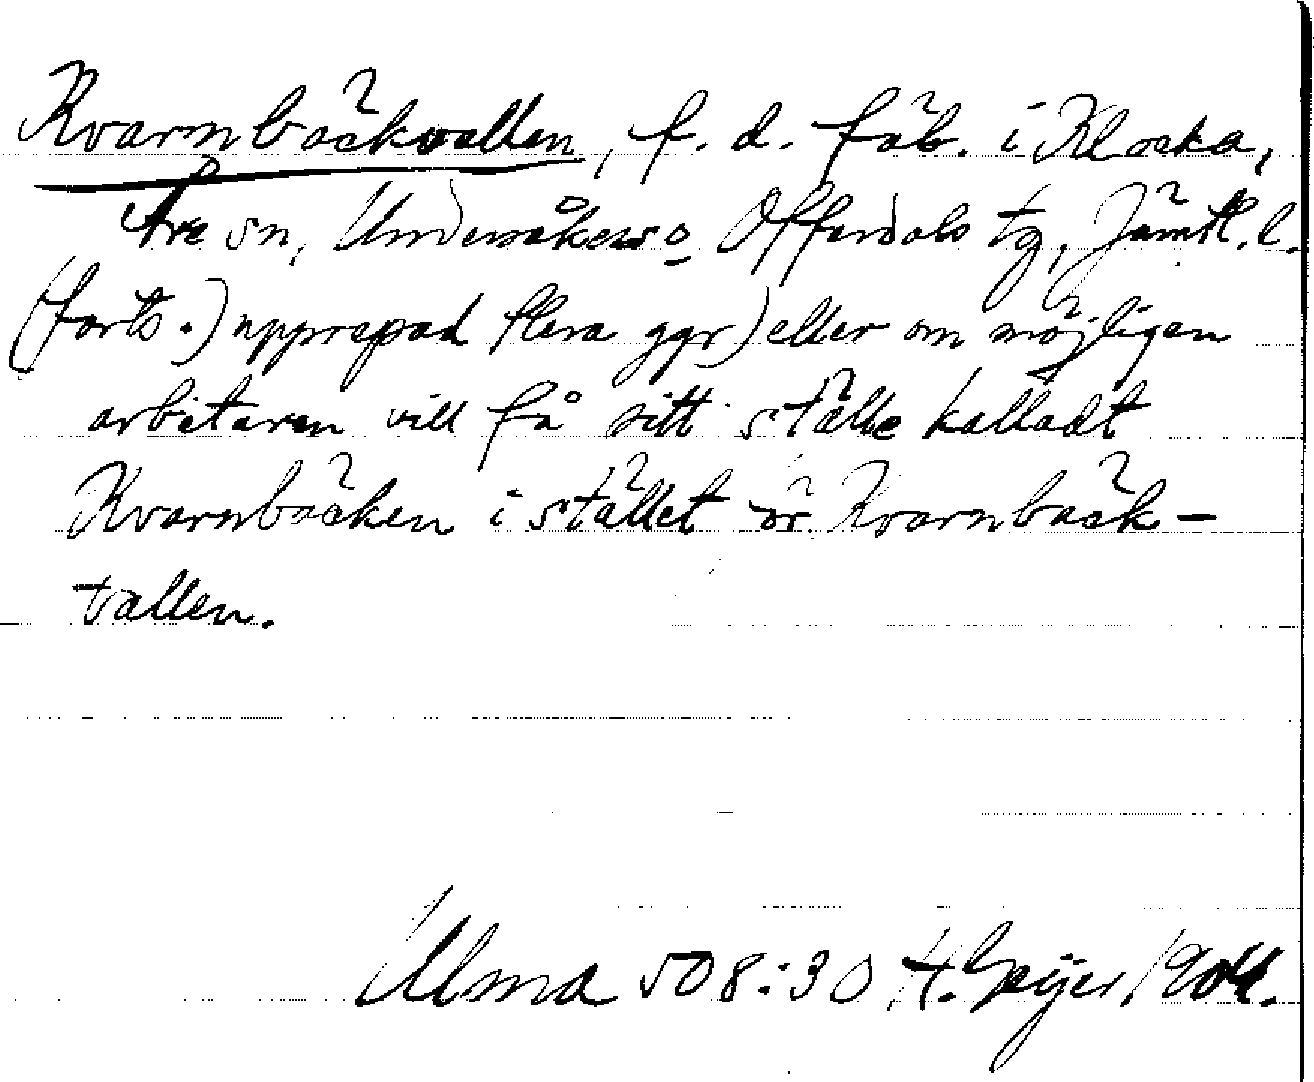 Kvarnbäckvallen, f. d. fäb. i Klocka,
Åre sn, Undersåkers o Offerdals tg, Jämtl. l.
(forts.) upprepad flera ggr) eller om möjligen
arbetaren vill få sitt ställe kalladt
Kvarnbäcken i stället är Kvarnbäck-
tallen.
Ulma 508:30 H. Geijer 1904.